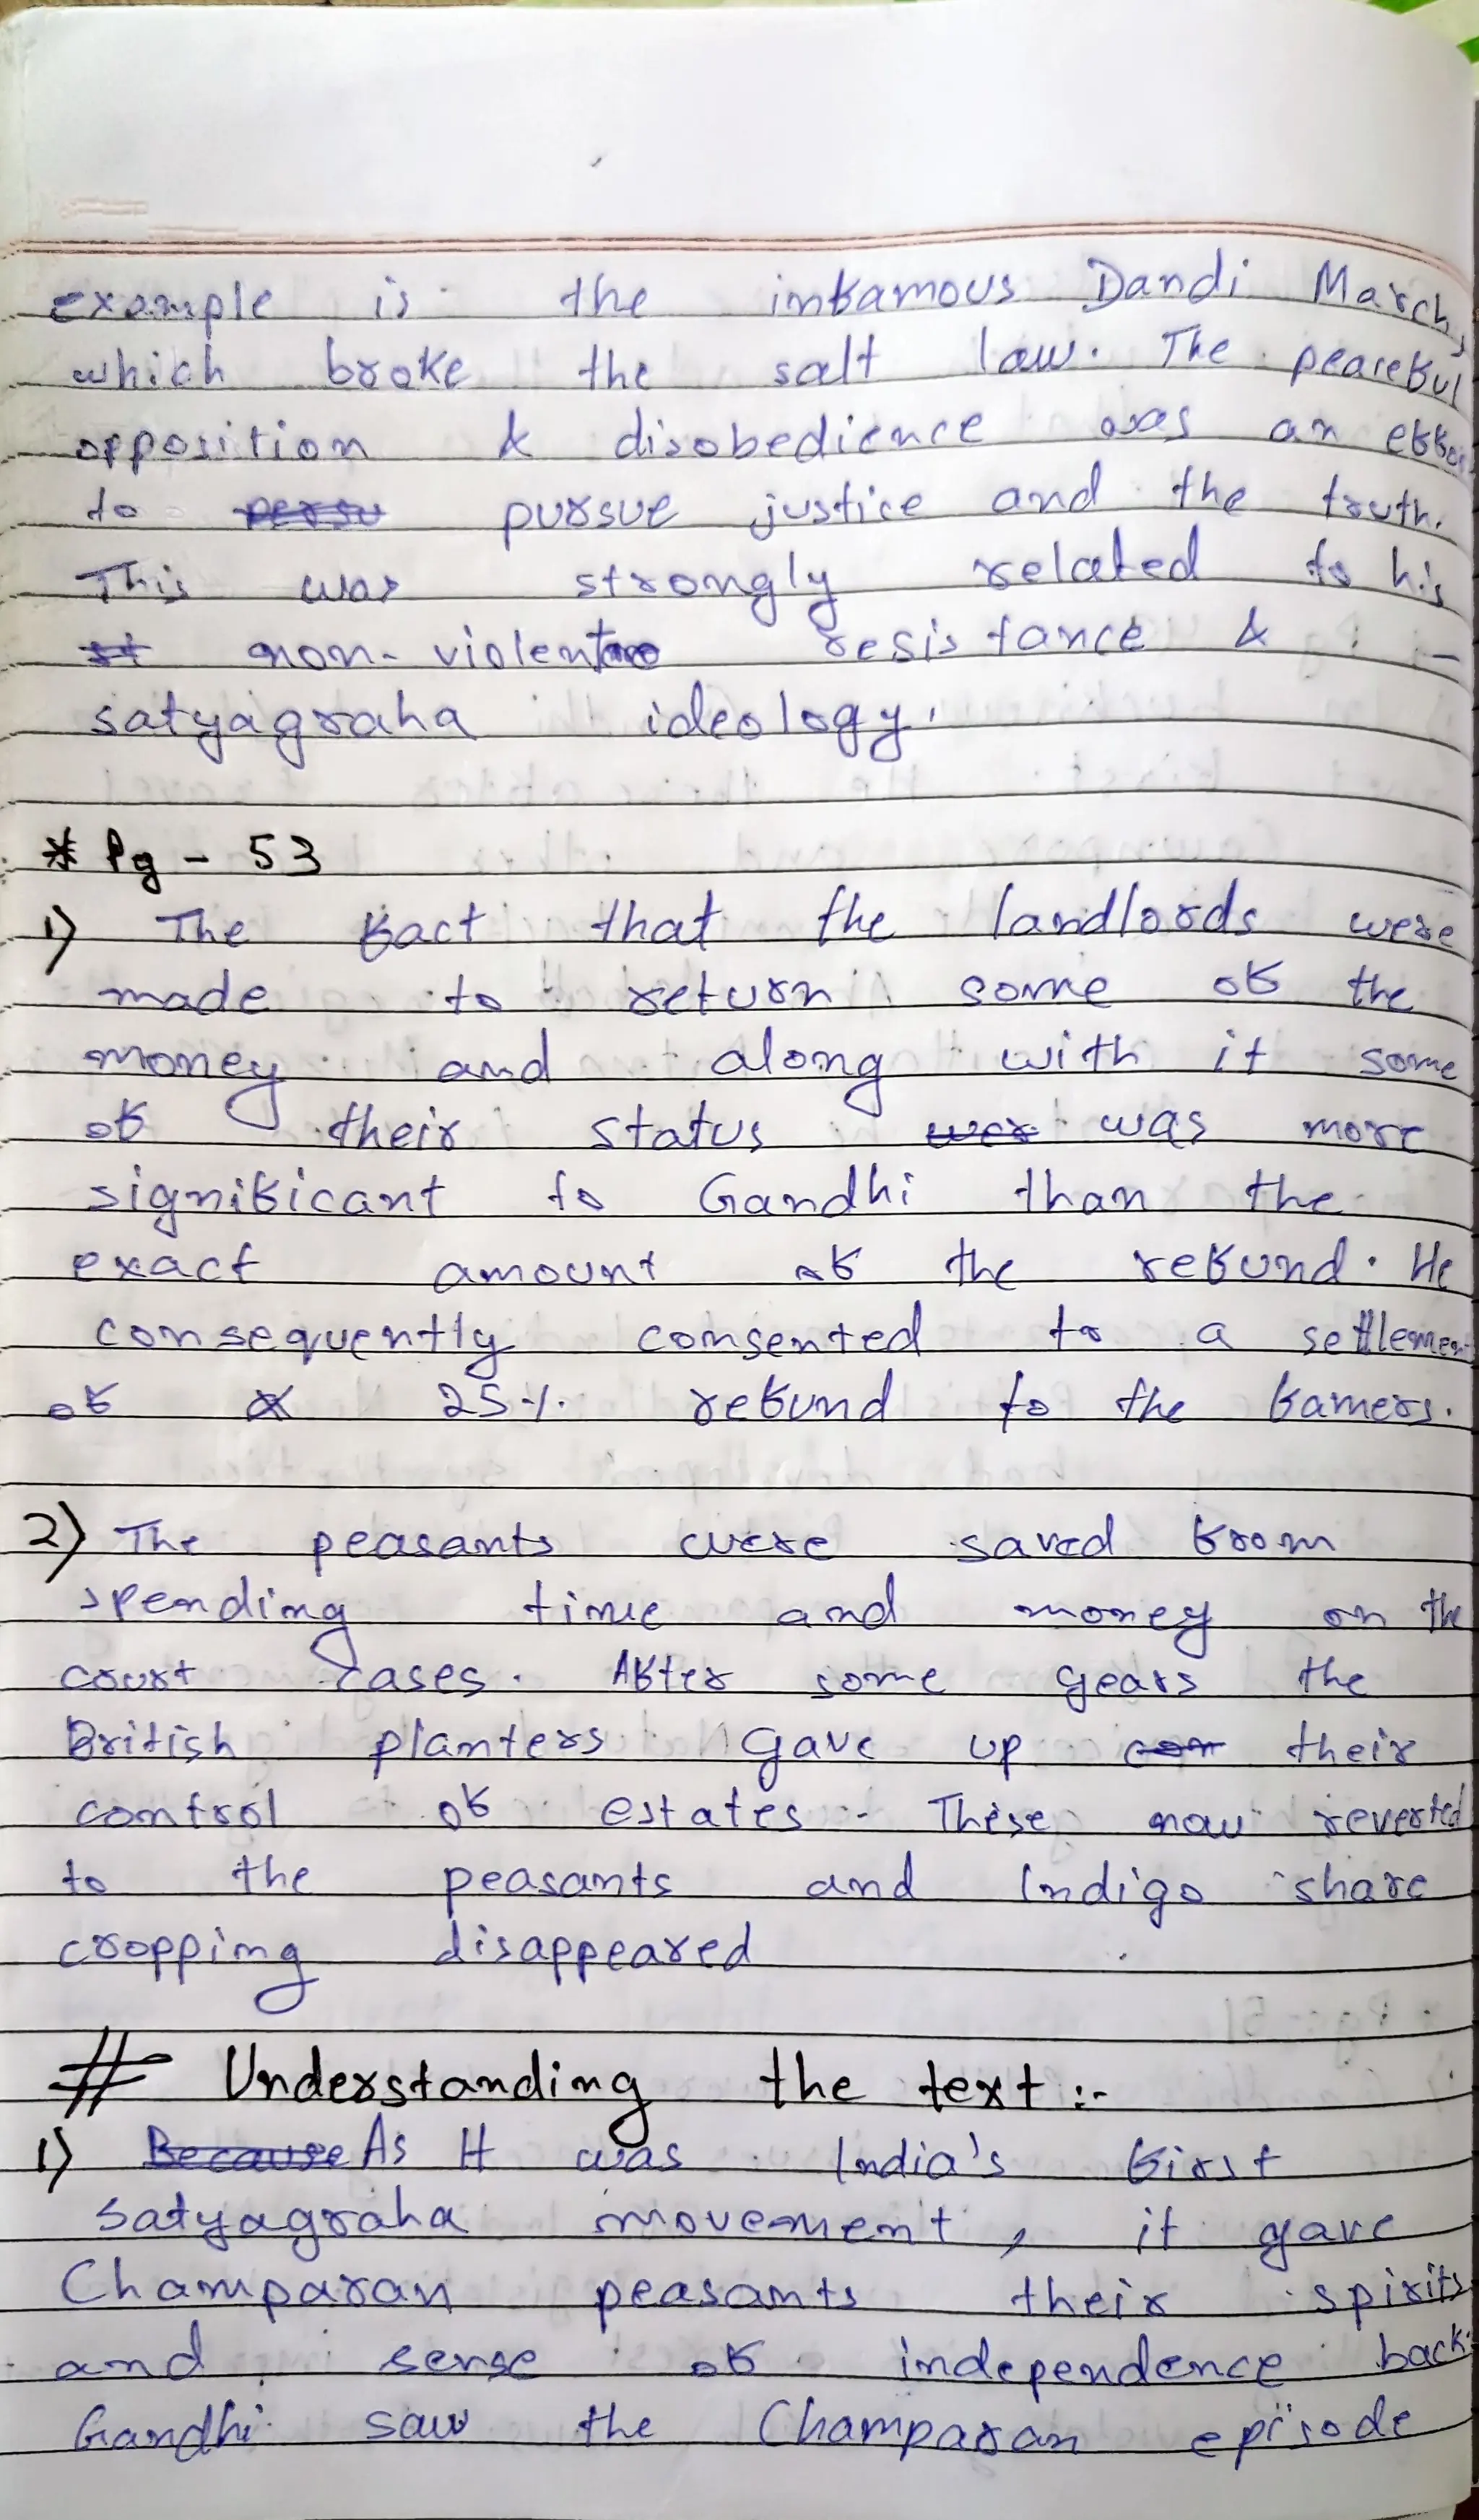 example is the infamous Dandi March,
which broke the salt law. The peaceful
opposition & disobedience was an effor
to persu pursue justice and the truth.
This was strongly related to his
st non-violent resistance & -
satyagraha ideology.
* Pg - 53
1) The fact that the landlords were
made to return some of the
money and along with it some
of their status wer was more
significant to Gandhi than the
exact amount of the refund. He
consequently consented to a settlement
of a 25% refund to the famers.
2) The peasants were saved from
spending time and money on the
court cases. After some years the
British planters gave up con their
control of estates. These now reverted
to the peasants and Indigo share
cropping disappeared
# Understanding the text :-
1) Because As It was India's first
satyagraha movement, it gave
Champaran peasants their spirits
and sense of independence back.
Gandhi saw the Champaran episode